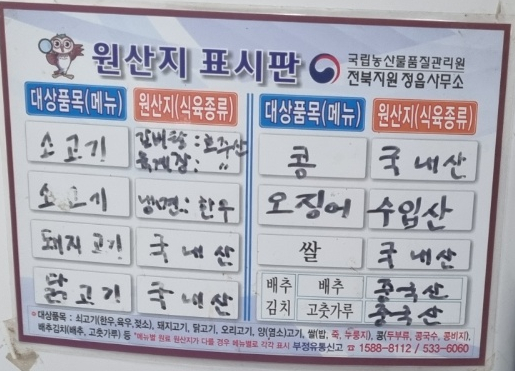 원산지 표시판
국립농산물품질관리원
전북지원 정읍사무소
대상품목(메뉴) 원산지(식육종류)
소고기 갈비탕 : 호주산
육개장 : 〃
소고기 냉면 : 한우
돼지고기 국내산
닭고기 국내산
대상품목(메뉴) 원산지(식육종류)
콩 국내산
오징어 수입산
쌀 국내산
배추김치 배추 중국산
고춧가루 중국산
•대상품목 : 쇠고기(한우,육우,젖소), 돼지고기, 닭고기, 오리고기, 양(염소)고기, 쌀(밥, 죽, 누룽지), 콩(두부류, 콩국수, 콩비지),
배추김치(배추, 고춧가루) 등 *메뉴별 원료 원산지가 다를 경우 메뉴별로 각각 표시 부정유통신고 ☎ 1588-8112 / 533-6060